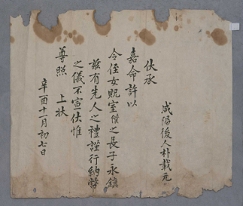 後人朴載
伏承
嘉命許以
令侄女貺室僕之長子永
玆有先人之禮謹行納幣
之儀不宣伏惟
尊照 上狀
辛酉十一月初七日